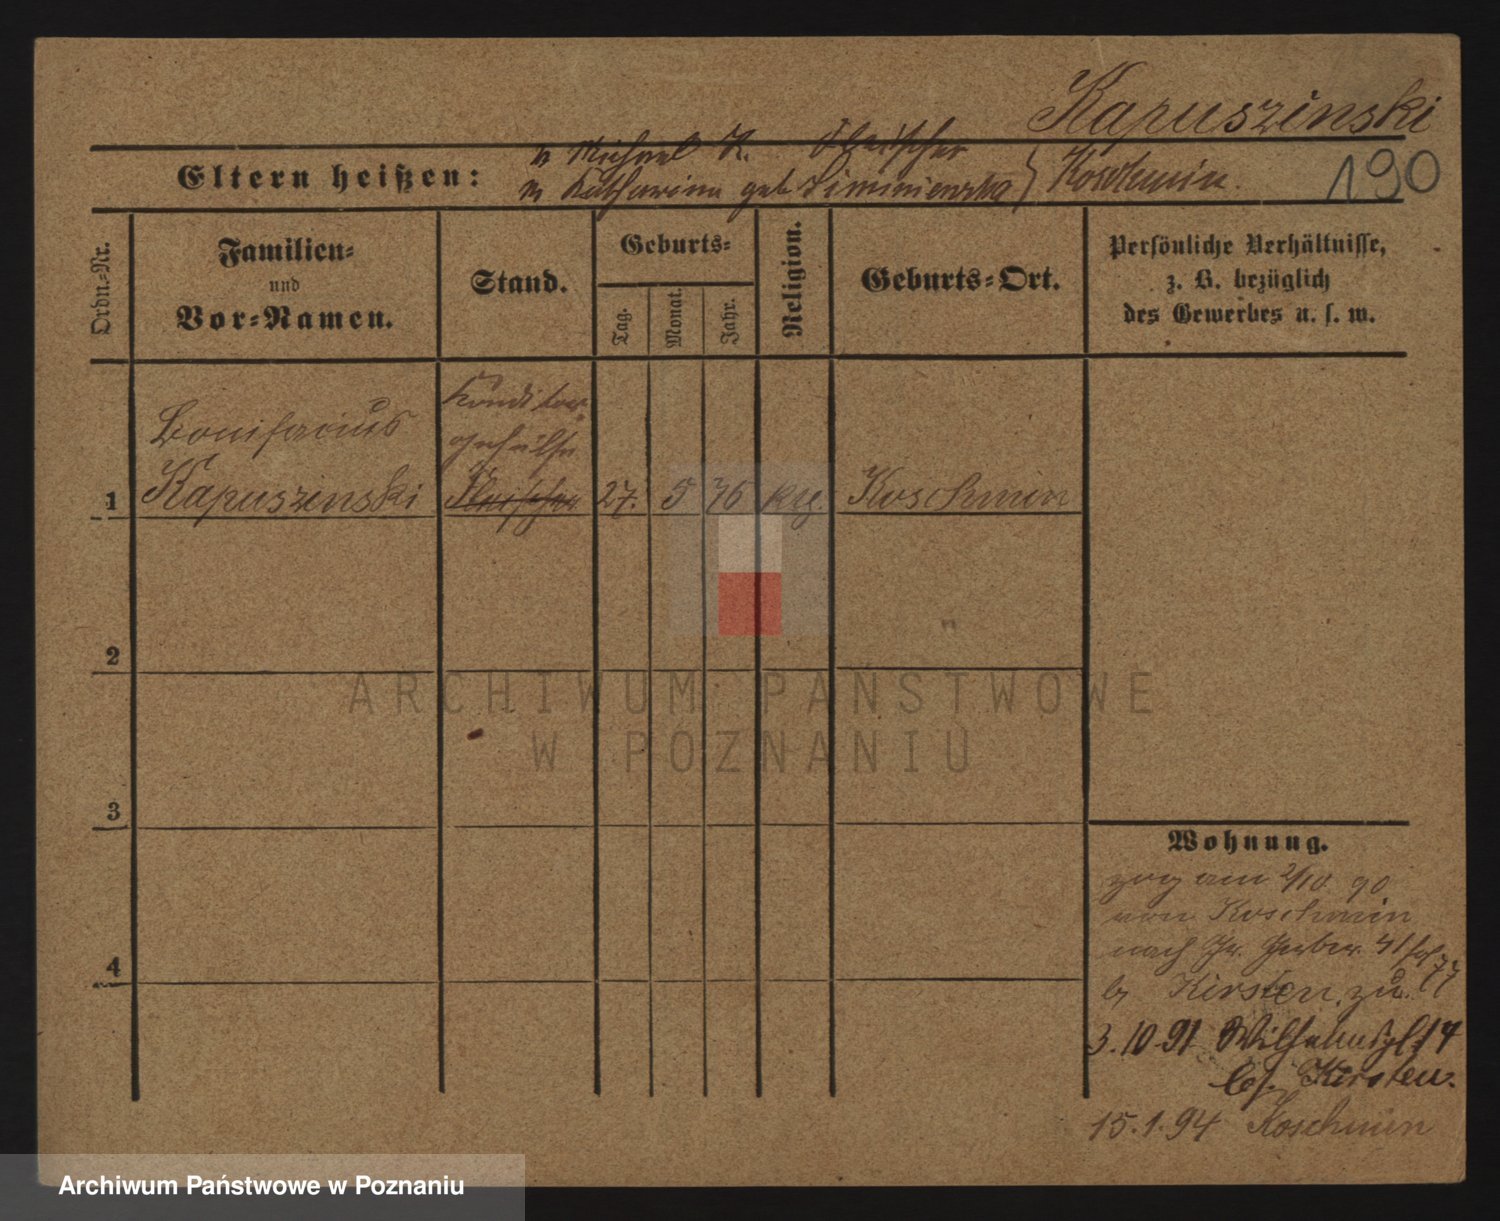 Kapuszinski
Michael K. Fleischer
Eltern heißen: Katharina geb. Siminienska } Koschmin. 190
Ordn.-Nr.
Familien- und Vor-Namen.
Stand.
Geburts-
Tag. Monat. Jahr.
Religion.
Geburts-Ort.
Persönliche Verhältnisse,
z. B. bezüglich
des Gewerbes u. s. w.
Bonifacius Konditor
gehülfe
1 Kapuszinski Fleischer 27. 5 76 Koschmin
2
ARCHIWUM PAŃSTWOWE
W POZNANIU
3
Wohnung.
zog am 2/10. 90
von Koschmin
nach Gr. Gerber. 41
4
b/ Kirsten zu.
3.10.91 Wilhelmspl. 14
bei Kirsten.
15.1.94 Koschmin
Archiwum Państwowe w Poznaniu